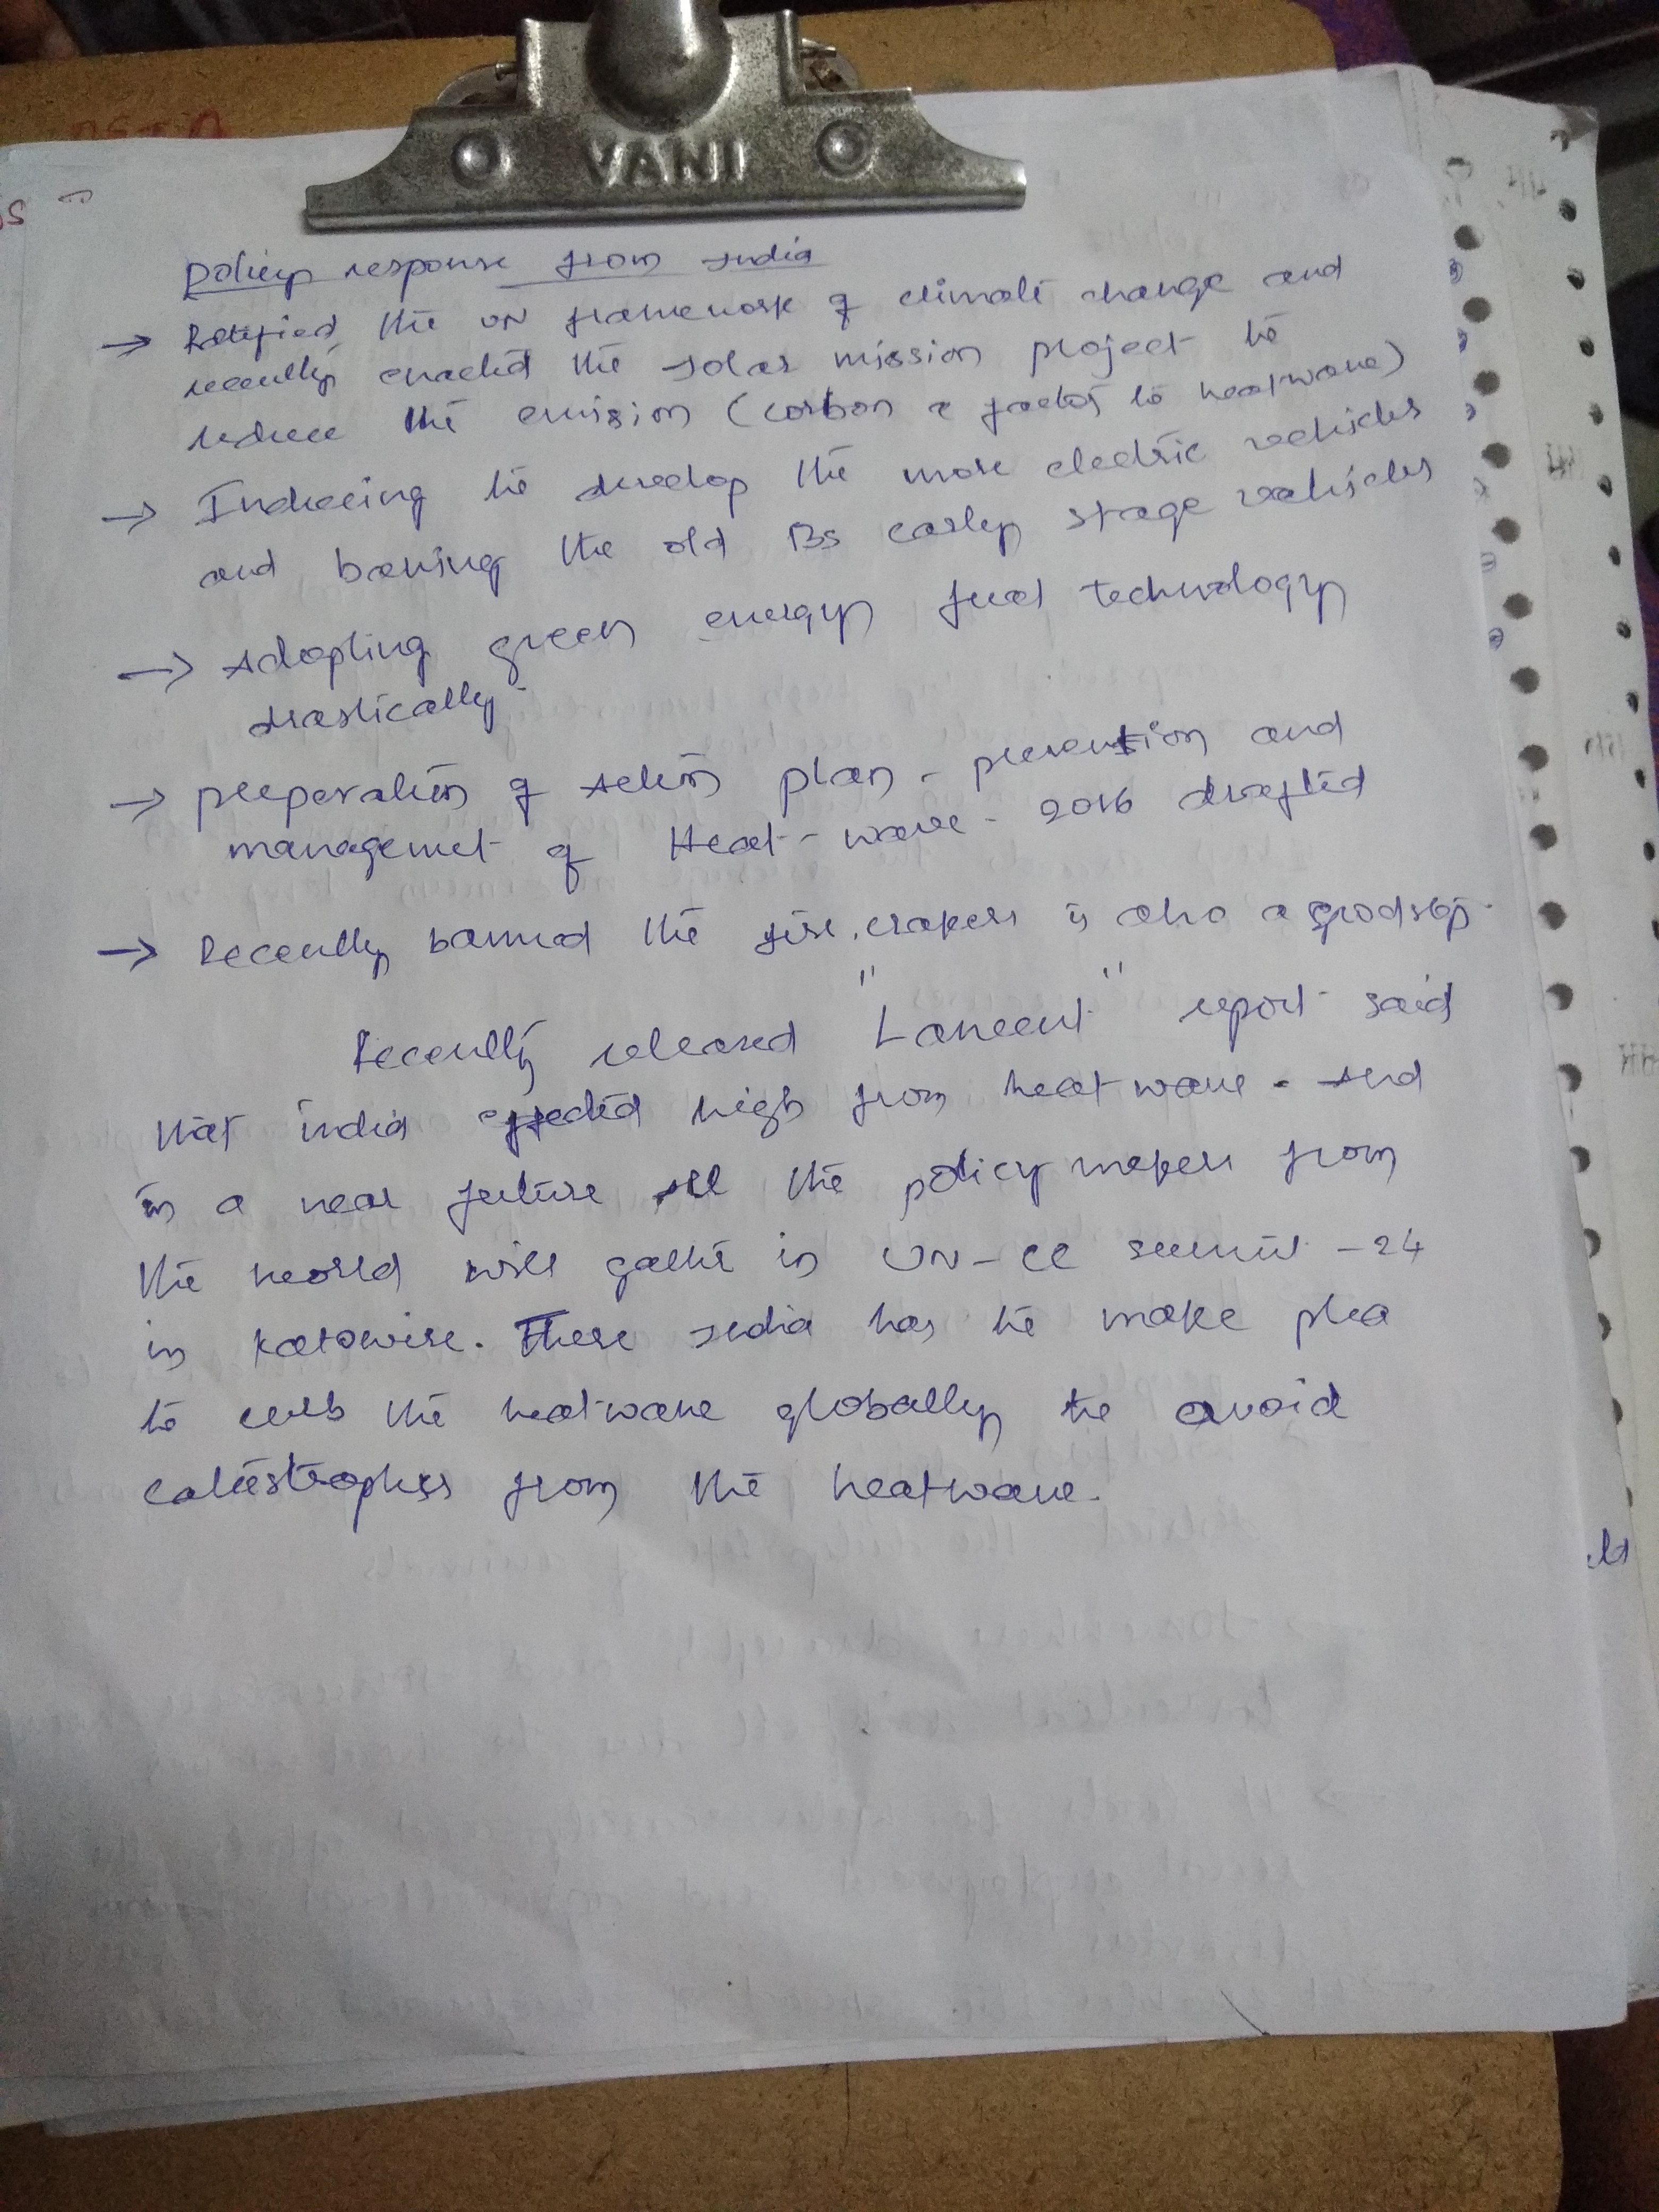 VANI
Policy response from India
→ Ratified the UN framework of climate change and
recently enacted the solar mission project to
reduce the emission (carbon a factor to heatwave)
→ Inducing to develop the more electric vehicles
and baning the old BS early stage vehicles
→ Adopting green energy fuel technology
drastically.
→ preparation of Action plan - prevention and
managemet of Heat-wave - 2016 drafted
→ Recently banned the fire crakers is also a good step.
Recently released "Lanceent" report said
that india effected high from heat wave. And
in a near future all the policy makers from
the world will gathe in UN-CC summit - 24
in Katowise. There India has to make plea
to curb the heatwave globally to avoid
from the heatwave.